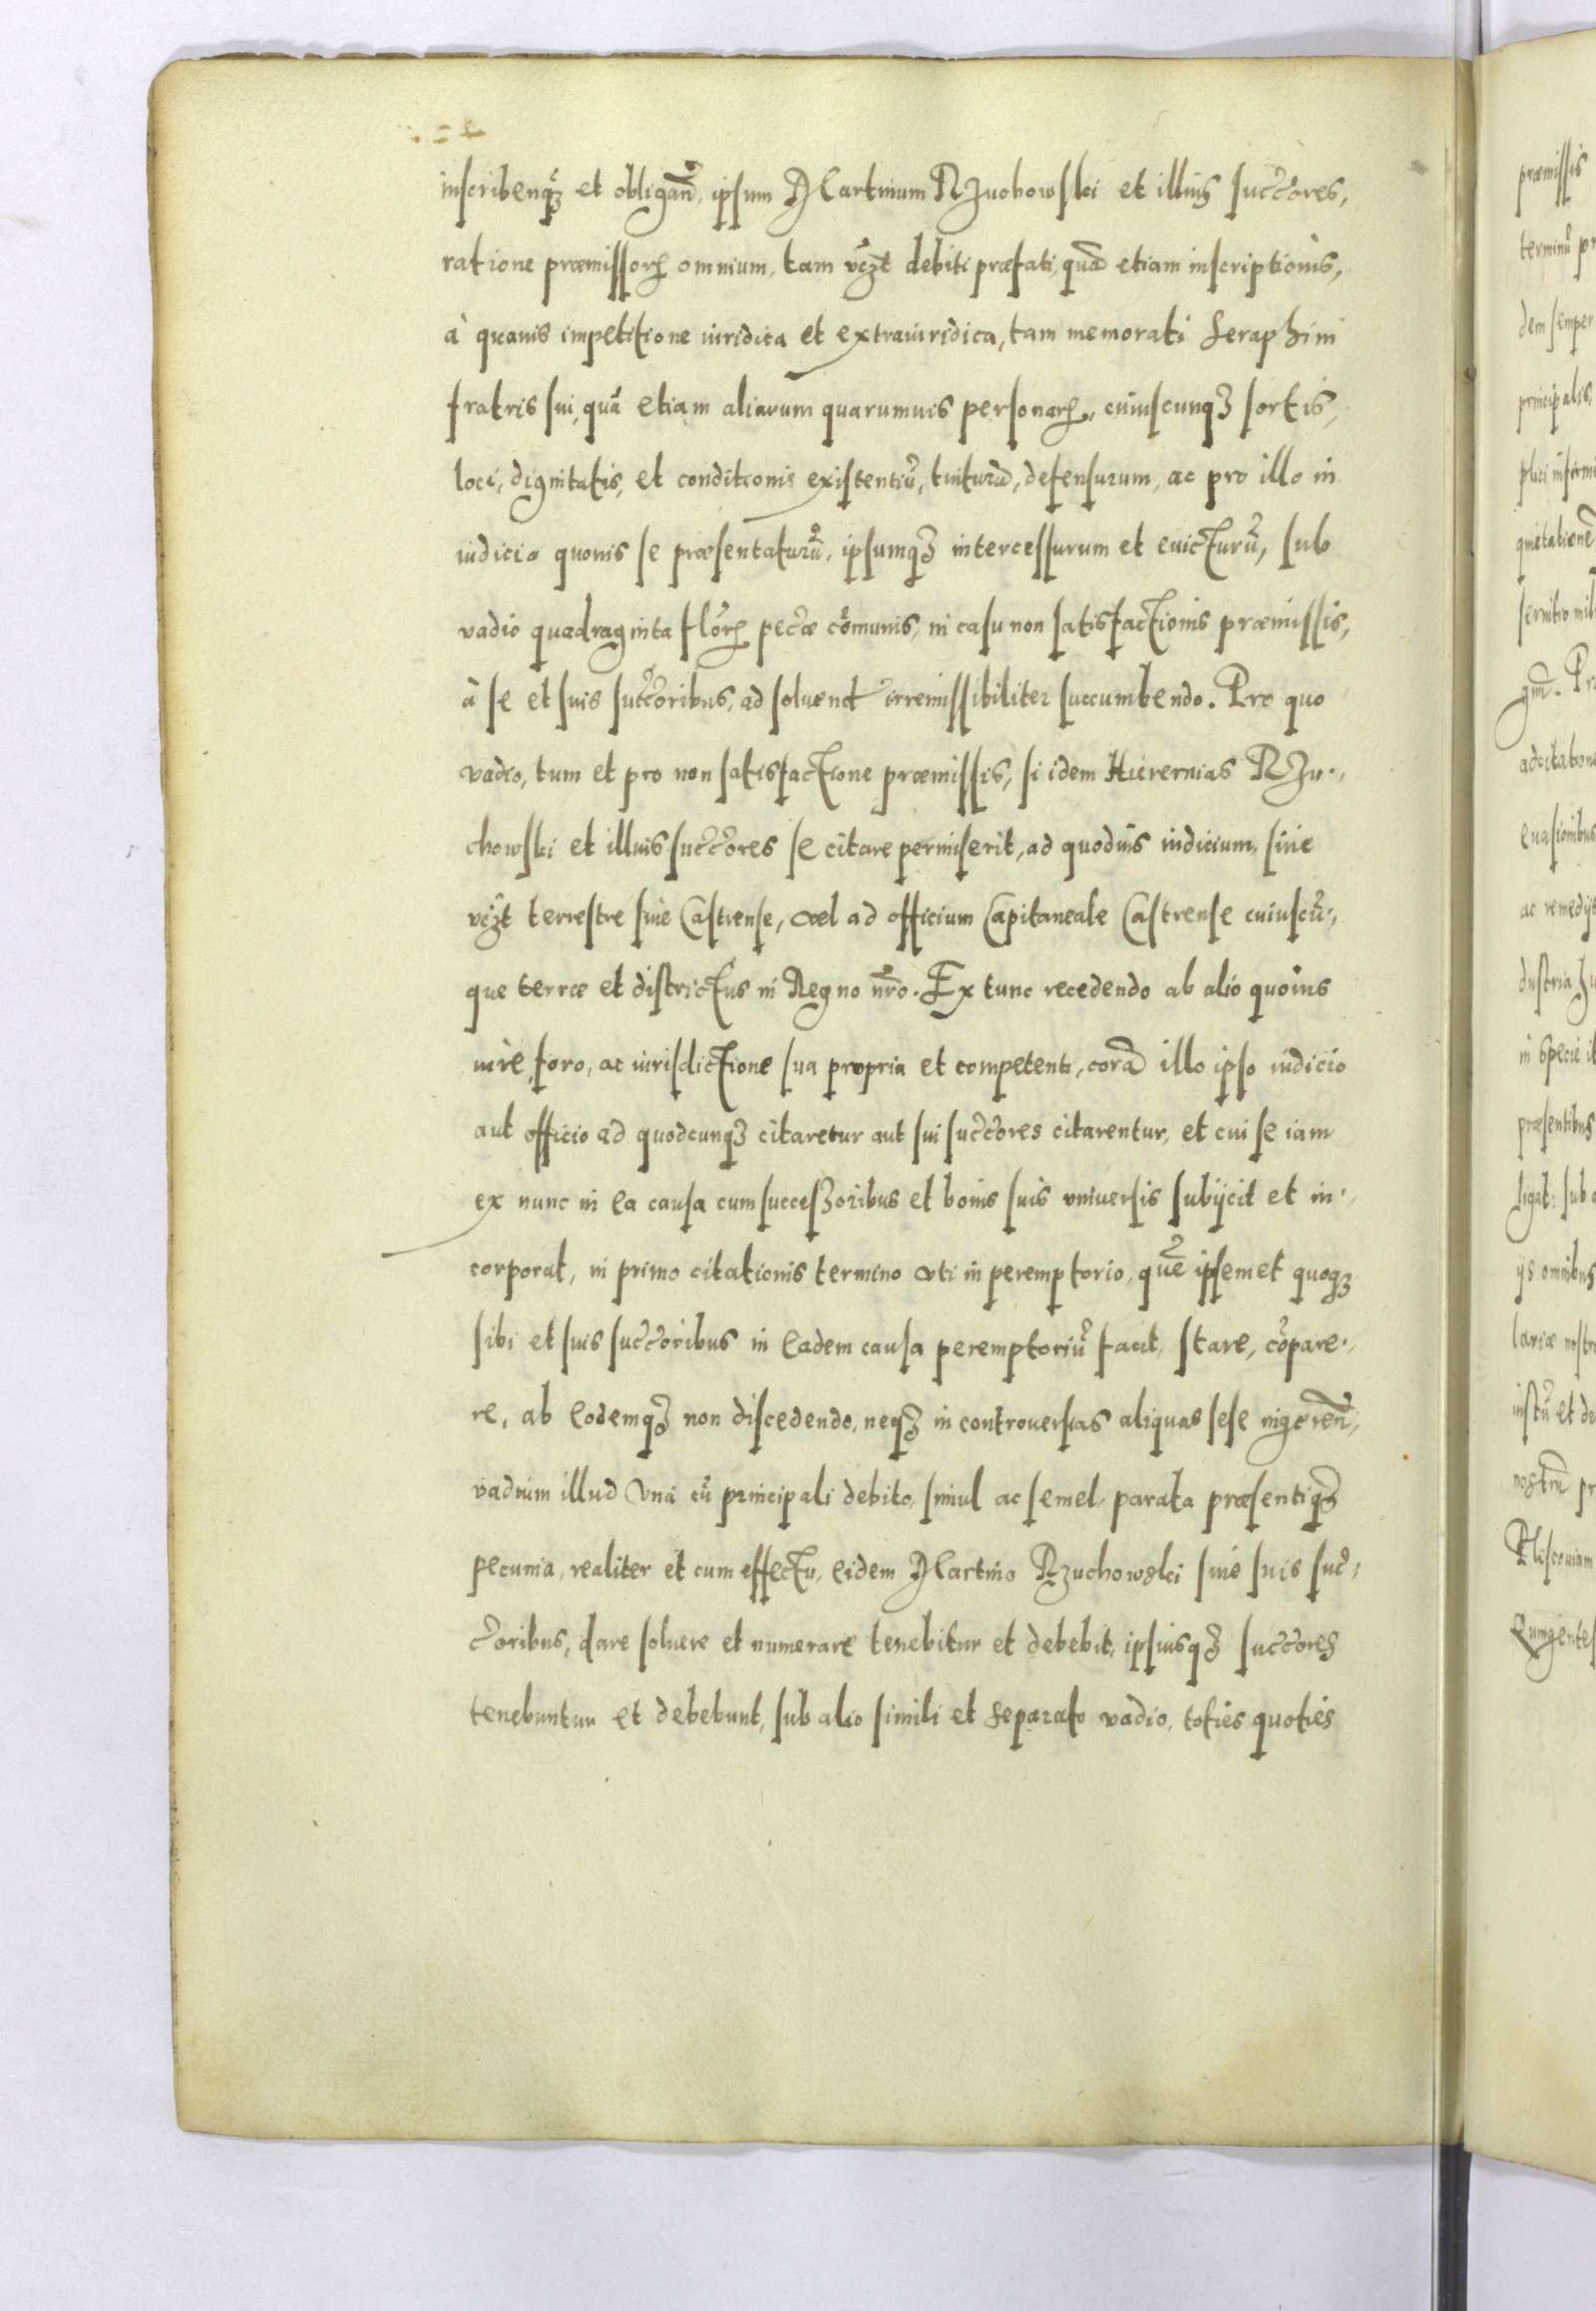 inscribenqꝫ et obligañ, ipsum Martinum Rzuchowski et illius succ̃ores,
ratione præmissorꝝ omnium, tam vꝫt debiti præfati, quã etiam inscriptionis,
à quavis impetitione iuridica et extraiuridica, tam memorati Seraphim
fratris sui, quã etiam aliarum quarumuis personarꝝ, cuiuscunqꝫ sortis,
loci, dignitatis, et conditionis existentiũ, tuiturũ, defensurum, ac pro illo in
iudicio quouis se præsentaturũ, ipsumqꝫ intercessurum et euicturũ, sub
vadio quadraginta florꝝ pec̃æ cõmunis, in casu non satisfactionis præmissis,
à se et suis succ̃oribus, ad soluend irremissibiliter succumbendo. Pro quo
vadio, tum et pro non satisfactione præmissis, si idem Hieremias Rzu-
chowski et illius succ̃ores se citare permiserit, ad quoduis iudicium, siue
vꝫt terrestre siue Castrense, vel ad officium Capitaneale Castrense cuiuscũ-
que terræ et districtus in Regno nr̃o. Ex tunc recedendo ab alio quouis
iure, foro, ac iurisdictione sua propria et competenti, corã illo ipso iudicio
aut officio ad quodcunqꝫ citaretur aut sui succ̃ores citarentur, et cui se iam
ex nunc in ea causa cum successoribus et bonis suis vniuersis subijcit et in-
corporat, in primo citationis termino vti in peremptorio, quẽ ipsemet quoqꝫ
sibi et suis succ̃oribus in eadem causa peremptoriũ facit, stare, cõpare-
re, ab eodemqꝫ non discedendo, neqꝫ in controuersias aliquas sese ingereñ,
vadium illud vnà cũ principali debito, simul ac semel, parata præsentiqꝫ
pecunia, realiter et cum effectu, eidem Martino Rzuchowski siue suis suc̃-
c̃oribus, dare soluere et numerare tenebitur et debebit, ipsiusqꝫ succ̃ores
tenebuntur et debebunt, sub alio simili et separato vadio, toties quoties
præmissis
dem semper
principalis,
quietationẽ
gm̃. Pr
ac remedijs
in specie
præsentibus
ijs omnibus